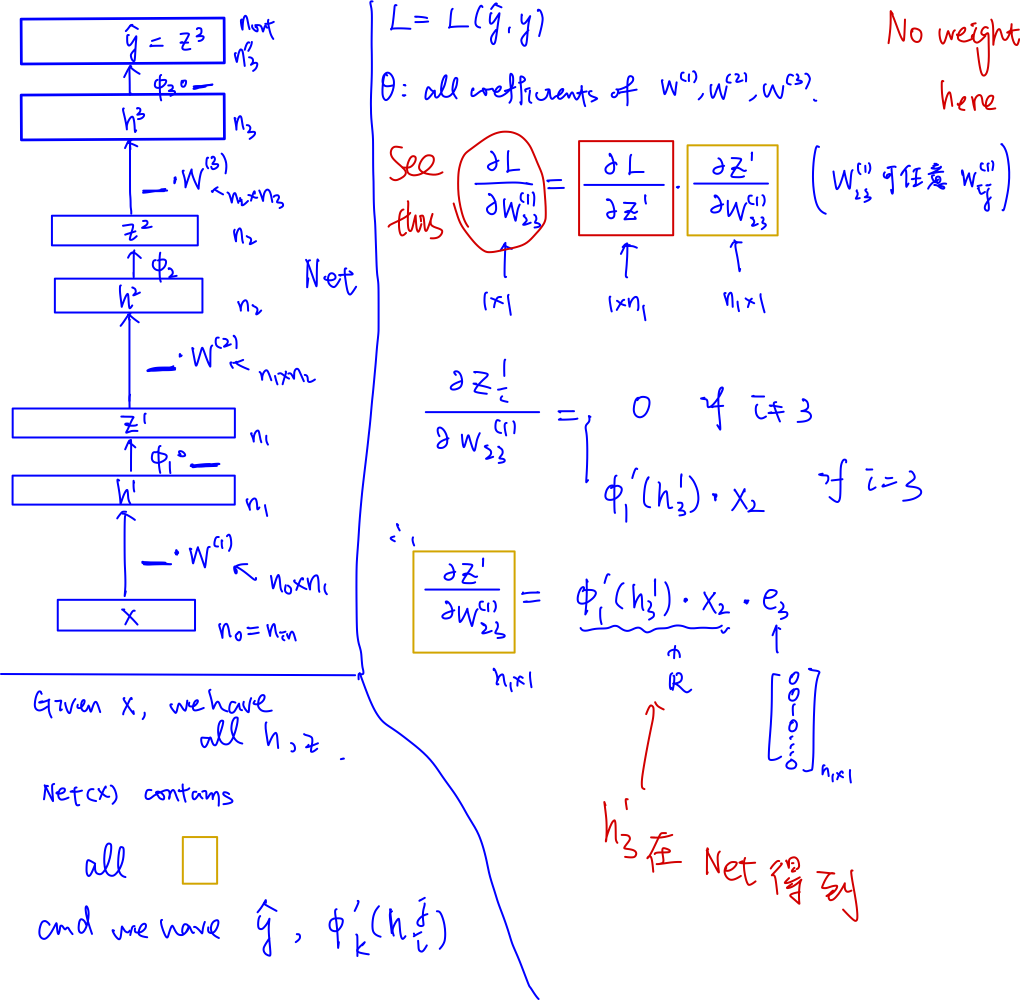 ŷ = z³
n_out
n₃
ϕ₃∘_
h³
n₃
_·W⁽³⁾
n₂×n₃
z²
n₂
ϕ₂
h²
n₂
Net
_·W⁽²⁾
n₁×n₂
z¹
n₁
ϕ₁∘_
h¹
n₁
_·W⁽¹⁾
n₀×n₁
x
n₀ = n_in
Given x, we have
all h, z.
Net(x) contains
all
and we have ŷ, ϕ'ₖ(hʲᵢ)
L = L(ŷ, y)
No weight
here
θ: all coefficients of W⁽¹⁾, W⁽²⁾, W⁽³⁾.
See
this
∂L/∂W₂₃⁽¹⁾ = ∂L/∂z¹ · ∂z¹/∂W₂₃⁽¹⁾ (W₂₃⁽¹⁾可任意 W_ij⁽¹⁾)
1×1
1×n₁
n₁×1
∂z¹ᵢ/∂W₂₃⁽¹⁾ = 0 if i≠3
ϕ₁'(h₃¹)·x₂ if i=3
∴
∂z¹/∂W₂₃⁽¹⁾ = ϕ₁'(h₃¹)·x₂·e₃
n₁×1
ℝ
[0 0 1 0 ⋮ 0]n₁×1
h₃¹在 Net 得到